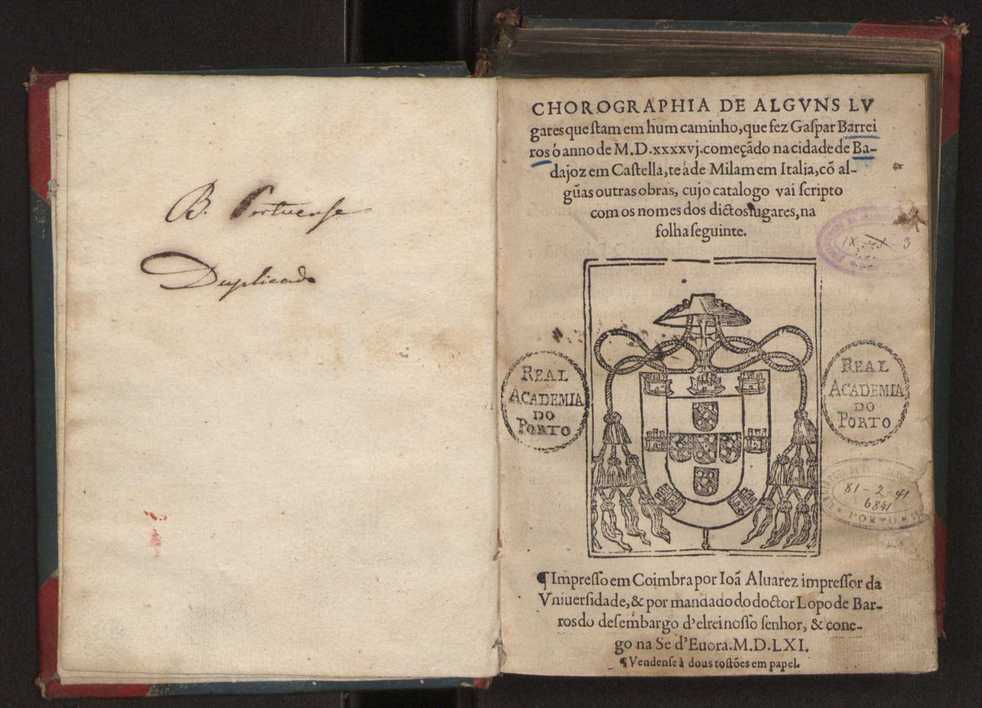 B. Portuense
Duplicado
CHOROGRAPHIA DE ALGVNS LV
gares que ſtam em hum caminho, que fez Gaſpar Barrei
ros ó anno de M.D.xxxxvj. começãdo na cidade de Ba-
dajoz em Caſtella, te á de Milam em Italia, cõ al-
gũas outras obras, cujo catalogo vai ſcripto
com os nomes dos dictos lugares, na
folha ſeguinte.
REAL
ACADEMIA
DO
PORTO
REAL
ACADEMIA
DO
PORTO
81-2-41
6841
PORTO
¶ Impreſſo em Coimbra por Ioã Aluarez impreſſor da
Vniuerſidade, & por mandado do doctor Lopo de Bar-
ros do deſembargo d'elrei noſſo ſenhor, & cone-
go na Se d'Euora. M.D.LXI.
¶ Vendenſe à dous toſtões em papel.